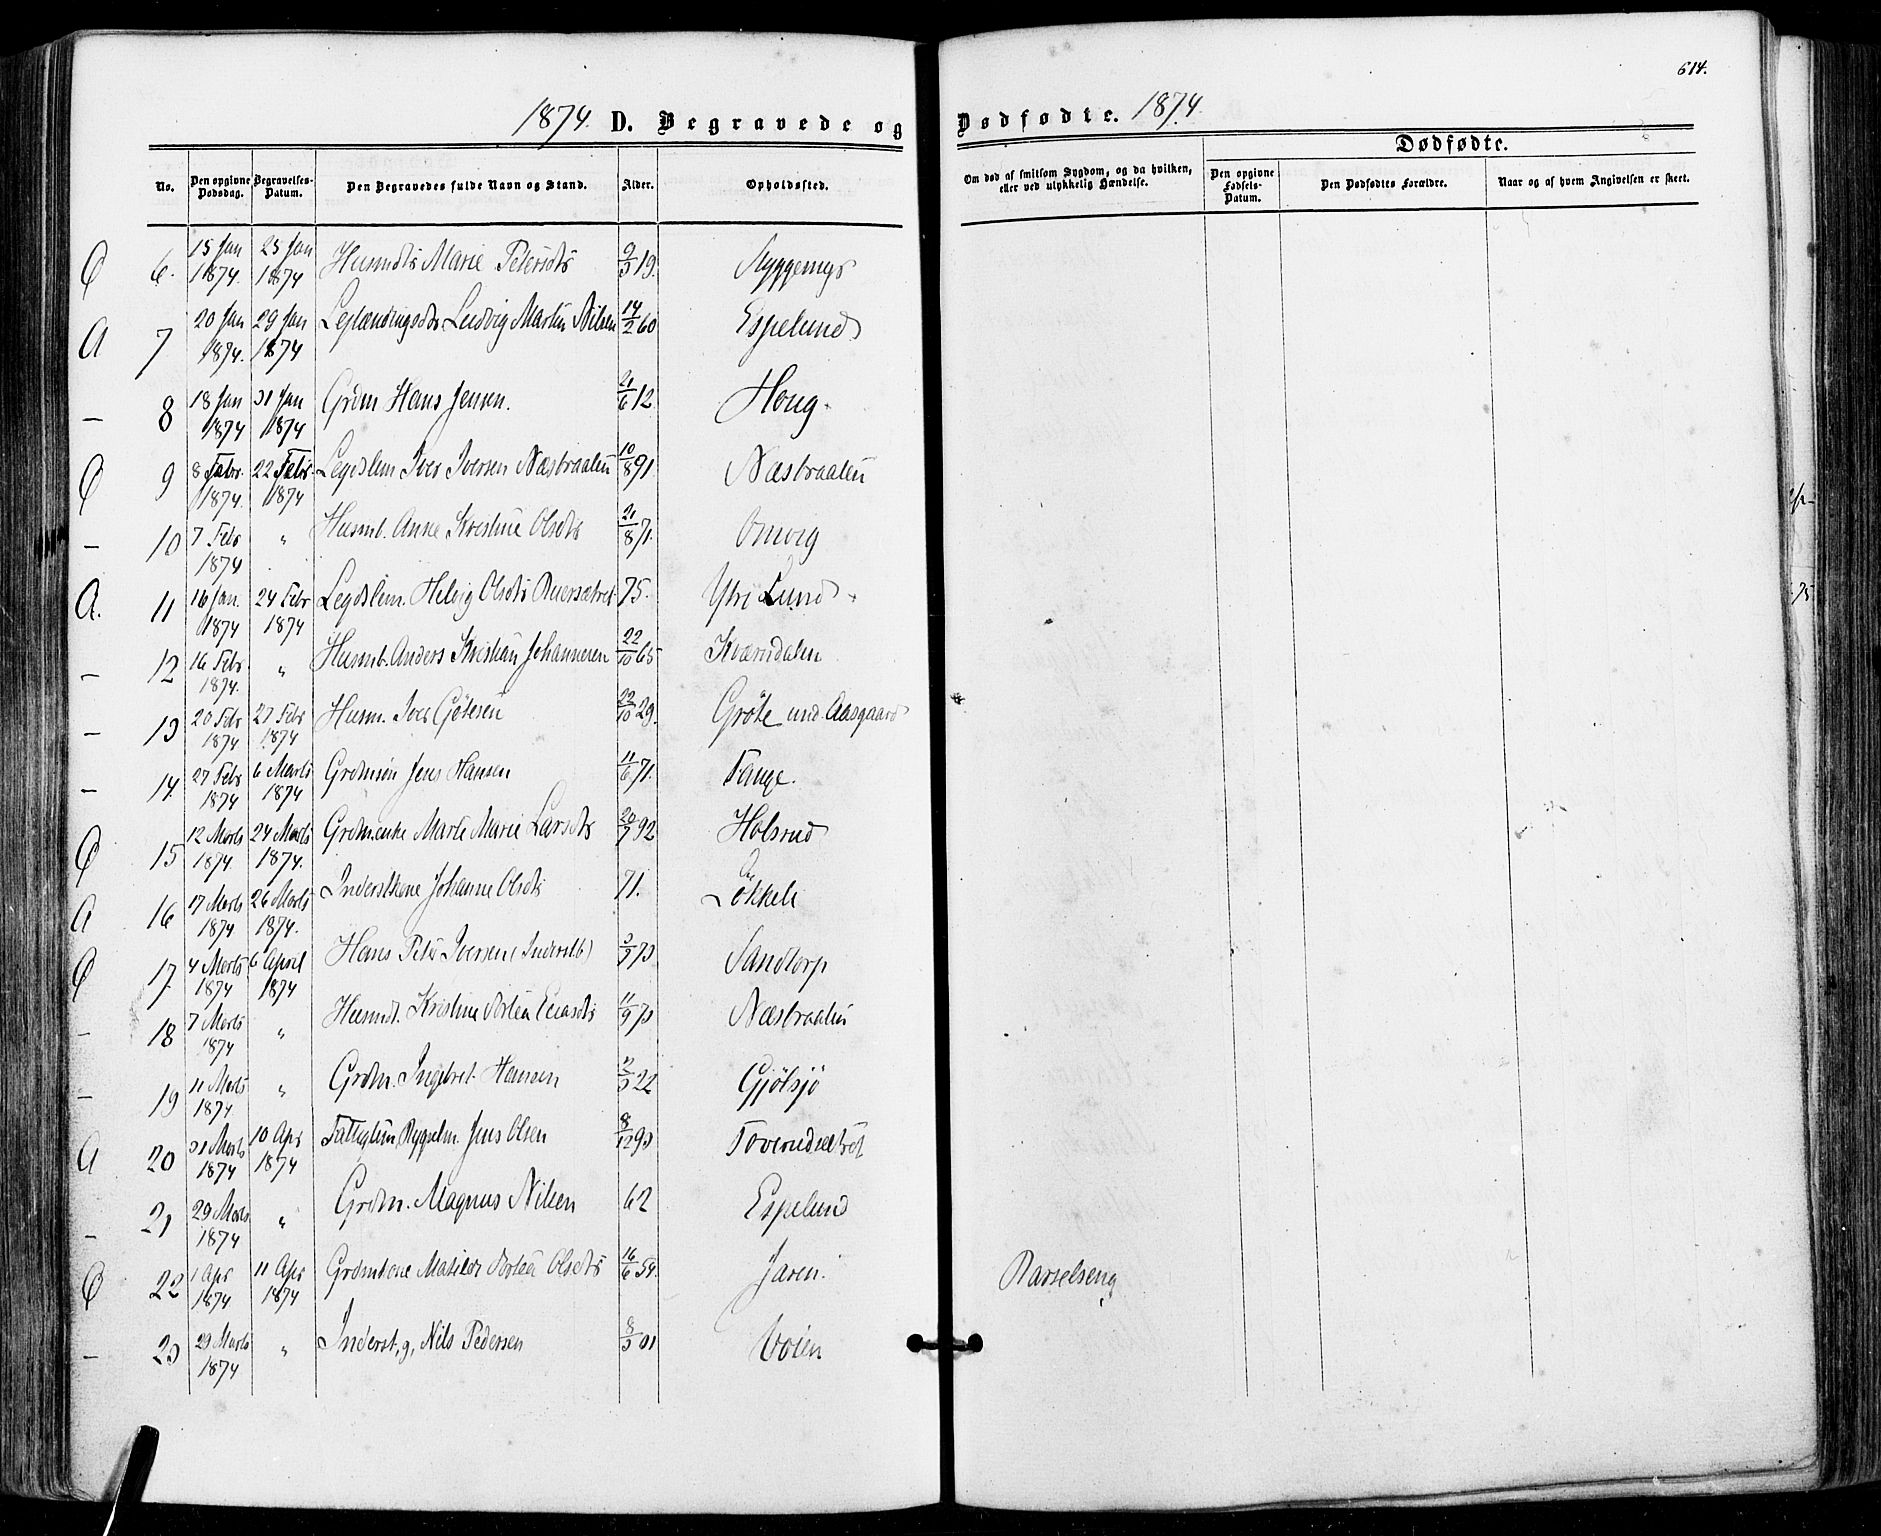 614.
1874. D. Begravede og Dødfødte. 1874.
Dødfødte.
No. Den opgivne Dødsdag. Begravelses-Datum. Den Begravedes fulde Navn og Stand. Alder. Opholdssted. Om død af smitsom Sygdom, og da hvilken, eller ved ulykkelig Hændelse. Den opgivne Fødsels-Datum. Den Dødfødtes Forældre. Naar og af hvem Angivelsen er skeet.
6. 15 Jan 1874. 25 Jan 1874 Husmdtr Marie Petersdtr 9/3 19. Styggemyr
A 7 20 Jan 1874. 29 Jan 1874 Ludvig Martin Nilsen 14/2 60 Espelund
— 8 18 Jan 1874 31 Jan 1874 Grdm Hans Jensen. 21/6 12. Houg
9 8 Febr 1874. 22 Febr. 1874 Legdslem Iver Iversen Næsbraaten 10/8 91 Næsbraaten
— 10 7 Febr 1874 " Husmb. Anne Kristine Olsdtr 21/8 71. Onvig
A. 11 16 Jan. 1874 24 Febr 1874 Legdslem. Helvig Olsdtr 75. Ytre Lund
— 12 16 Febr. 1874. " Husmb. Anders Kristian Johannesen 22/10 65 Kværndalen
— 13 20 Febr 1874 27 Febr 1874 Husm. Iver Gulesen 22/10 29. Grøte und. Aasgaard
— 14. 27 Febr 1874 6 Marts 1874 Grdmsøn Jens Hansen 11/6 71. Tange.
15 12 Marts 1874. 24 Marts 1874. Grdmenke Marte Marie Larsdtr 20/7 92 Holsrud
A 16 17 Marts 1874 26 Marts 1874. Inderstkone Johanne Olsdtr 71. Løkkeli
17. 4 Marts 1874 6 April 1874 Hans Peter Iversen (Inderstb) 3/9 73 Sandtorp
— 18 7 Marts 1874 " Husmdt. Kristine Dortea 11/9 73 Næsbraaten
— 19 11 Marts 1874 " Grdm. Ingebret Hansen 22 Gjølsjø
A 20 31 Marts 1874 10 Apr 1874 Fattiglem, Jens Olsen 8/12 93 Toverudsætret
— 21 29 Marts 1874 " Grdm. Magnus Nilsen 62 Espelund
22 1 Apr 1874 11 Apr 1874 Grdmkone Matilde Dortea Olsdtr 16/6 54. Jaren. Barselseng
— 23 29 Marts 1874 " Inderst, g, Nils Pedersen 8/3 01 Voien